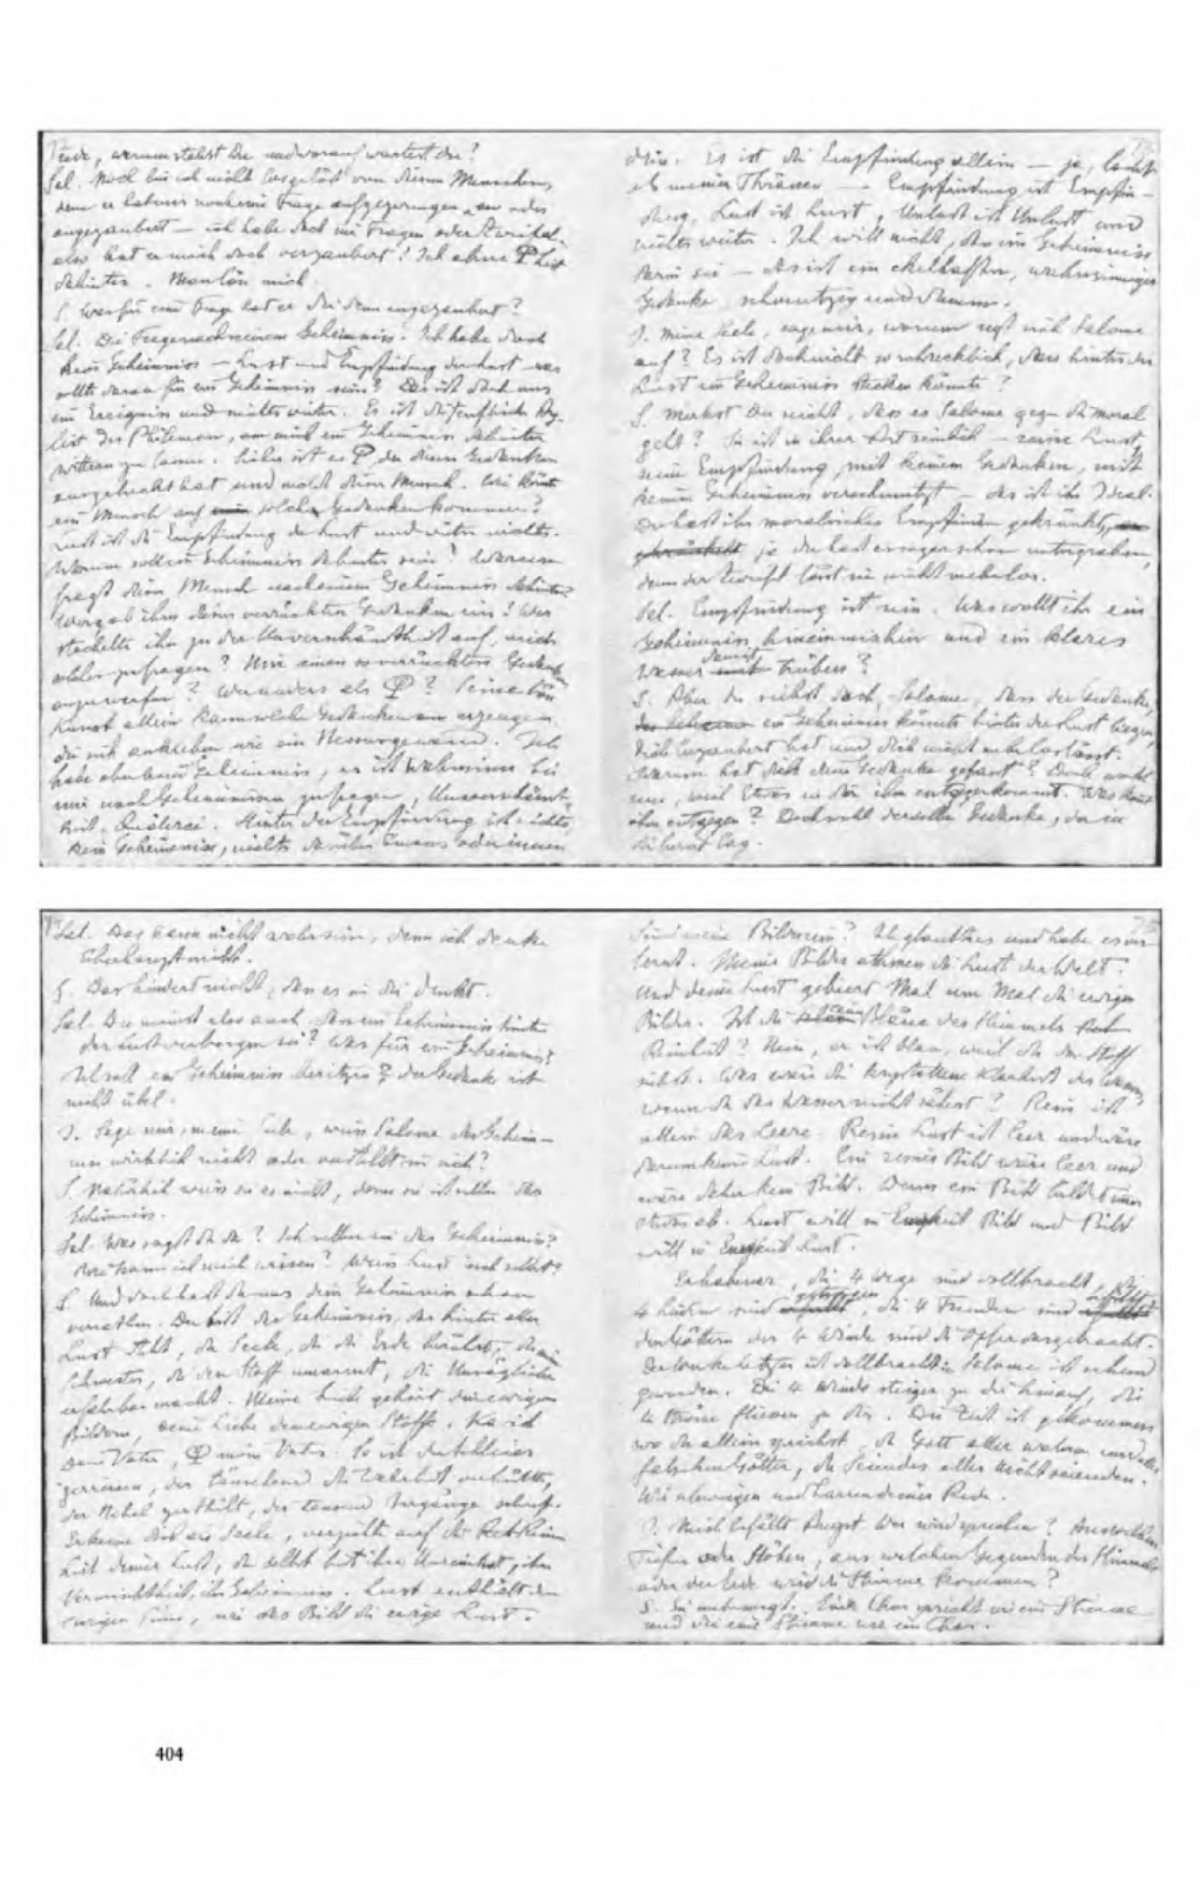 Ende, warum stehst du und worauf wartest du?
Sal. Noch bin ich nicht losgelöst von diesem Menschen,
denn er hat mir noch eine Frage aufgezwungen, an oder
angezaubert — ich habe doch nie Fragen oder Zweifel.
also hat er mich doch verzaubert! Ich ahne Φ List
dahinter. Man löse mich.
S. Was für eine Frage hat er dir denn angezaubert?
Sal. Die Frage nach meinem Geheimniss. Ich habe doch
kein Geheimniss — Lust und Empfindung der Lust — was
sollte daran für ein Geheimniss sein? Das ist doch nur
ein Ereigniss und nichts weiter. Es ist die teuflische
list des Philemon, um mich ein Geheimniss dahinter
wittern zu lassen. Sicher ist es Φ der diesen Gedanken
ausgeheckt hat und nicht dieser Mensch. Wie könnte
ein Mensch auf solche Gedanken kommen?
Lust ist die Empfindung der Lust und weiter nichts.
Warum soll ein Geheimniss dahinter sein? Warum
fragt dieser Mensch nach einem Geheimniss dahinter?
Wer gab ihm diesen verrückten Gedanken ein? Wer
stachelte ihn zu der Unverschämtheit auf, mich
solches zu fragen? Mir einen so verrückten Gedanken
anzuwerfen? Wer anders als Φ? Seine böse
Kunst allein kann solche Gedanken erzeugen,
die mich ankleben wie ein Nessusgewand. Ich
habe aber kein Geheimniss, es ist Wahnsinn bei
mir nach Geheimnissen zu fragen, Unverschämt-
heit, Quälerei. Hinter der Empfindung ist nichts,
kein Geheimniss, nichts dahinter aussen oder innen
drin. Es ist die Empfindung allein — ja,
meiner Thränen — Empfindung ist Empfin-
dung, Lust ist Lust, Unlust ist Unlust und
nichts weiter. Ich will nicht, dass ein Geheimniss
darin sei — das ist ein ekelhafter, wahnsinniger
Gedanke, schmutzig und dumm.
I. Meine Seele, sage mir, warum regt sich Salome
auf? Es ist doch nicht so schrecklich, dass hinter der
Lust ein Geheimniss stecken könnte?
S. Merkst du nicht, dass es Salome gegen die Moral
geht? Sie ist in ihrer Art reinlich — reine Lust,
reine Empfindung, mit keinem Gedanken, mit
keinem Geheimniss verschmutzt — das ist ihr Ideal.
Du hast ihr moralisches Empfinden gekränkt,
ja du hast es sogar schon untergraben,
denn der Zweifel lässt sie nicht mehr los.
Sal. Empfindung ist rein. Was wollt ihr ein
Geheimniss hineinmischen und ein klares
Wasser damit trüben?
S. Aber du siehst doch, Salome, dass der Gedanke,
ein Geheimniss könnte hinter der Lust liegen,
dich bezaubert hat und dich nicht mehr loslässt.
Warum hat dich dieser Gedanke gefasst? Doch wohl
nur, weil Etwas in dir ihm entgegenkommt. Was kommt
ihm entgegen? Doch wohl derselbe Gedanke, der in
dir lag.
Sal. Das kann nicht wahr sein, denn ich denke
überhaupt nicht.
S. Das hindert nicht, dass es in dir denkt.
Sal. Du meinst also auch, dass ein Geheimniss hinter
der Lust verborgen sei? Was für ein Geheimniss?
Ich soll ein Geheimniss besitzen? der Gedanke ist
nicht übel.
I. Sage mir, meine Seele, weiss Salome das Geheim-
niss wirklich nicht oder verstellt sie sich?
S. Natürlich weiss sie es nicht, denn sie ist selber das
Geheimniss.
Sal. Was sagst du da? Ich selber sei das Geheimniss?
Wie kann ich mich wissen? Weiss Lust sich selbst?
S. Und doch hast du uns dein Geheimniss schon
verrathen. Du bist das Geheimniss, das hinter aller
Lust steht, die Seele, die die Erde berührt, die
Schwester, die den Stoff umarmt, die Unsägliches
erfahrbar macht. Meine Lust gehört den ewigen
Bildern, deine Liebe dem ewigen Stoffe. Ka ist
dein Vater, Φ mein Vater. So ist der Schleier
zerrissen, der täuschend die Wahrheit umhüllte,
der Nebel zertheilt, der tausend Irrgänge schuf.
Erkenne dich als Seele, verzichte auf die Rein-
heit deiner Lust, du selbst bist ihre Unreinheit, ihre
Vermischtheit, ihr Geheimniss. Lust enthält den
ewigen Sinn, wie das Bild die ewige Lust.
Sind meine Bilder rein? Ich glaubte es und habe es ver-
lernt. Meine Bilder athmen die Lust der Welt.
Und deine Lust gebiert Mal um Mal die ewigen
Bilder. Ist die Bläue des Himmels
Reinheit? Nein, er ist blau, weil du den Stoff
siehst. Was wäre die krystallene Klarheit des Wassers,
wenn du das Wasser nicht sähest? Rein ist
allein das Leere. Reine Lust ist leer und wäre
darum keine Lust. Ein reines Bild wäre leer und
wäre daher kein Bild. Denn ein Bild bildet immer
etwas ab. Lust will in Ewigkeit Bild und Bild
will in Ewigkeit Lust.
Erhabener, die 4 Wege sind vollbracht, die
4 sind, die 4 Freuden sind
den Göttern der 4 Winde sind die Opfer dargebracht.
Der Werke letztes ist vollbracht: Salome ist sehend
geworden. Die 4 Winde steigen zu dir hinauf, die
4 Ströme fliessen zu dir. Die Zeit ist gekommen
wo du allein sprichst, du Gott aller wahren und aller
falschen Götter, du Seiendes aller Nichtseienden.
Wir schweigen und harren deiner Rede.
I. Mich befällt Angst. Wer wird sprechen? Aus welchen
Tiefen oder Höhen, aus welchen Gegenden des Himmels
oder der Erde wird die Stimme kommen?
S. Sei unbesorgt. Ein Chor spricht wie eine Stimme
und die eine Stimme wie ein Chor.
404